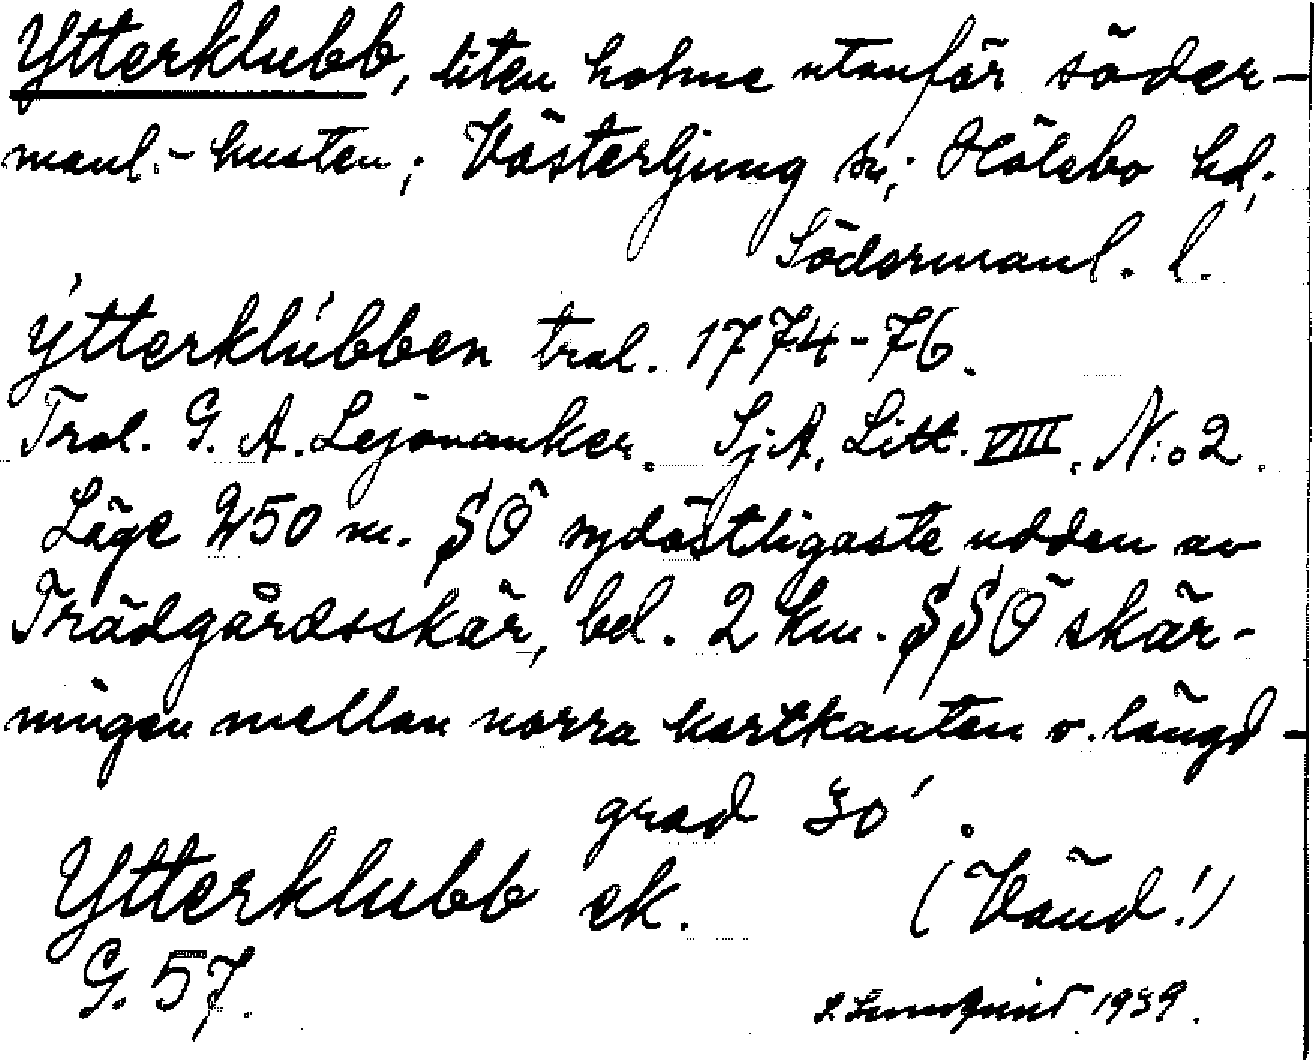 Ytterklubb, liten holme utanför söder-
manl.-kusten; Västerljung sn; Hölebo hd;
Södermanl. l.
Ýtterklúbben tral. 1774-76.
Tral. G. A. Lejonanker. SjA. Litt. VIII. N:o 2.
Läge 250 m. SÖ sydöstligaste udden av
Trädgårdsskär, bel. 2 km. SSÖ skär-
ningen mellan norra kartkanten o. längd-
grad 30'.
Ytterklubb ek. (Vänd!)
G. 57.
1939.